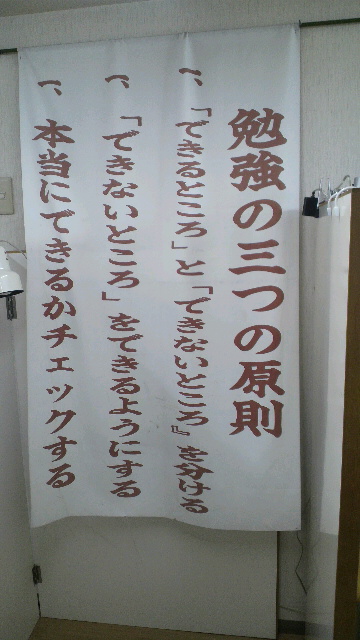 勉強の三つの原則
一、「できるところ」と「できないところ』を分ける
一、「できないところ」をできるようにする
一、本当にできるかチェックする